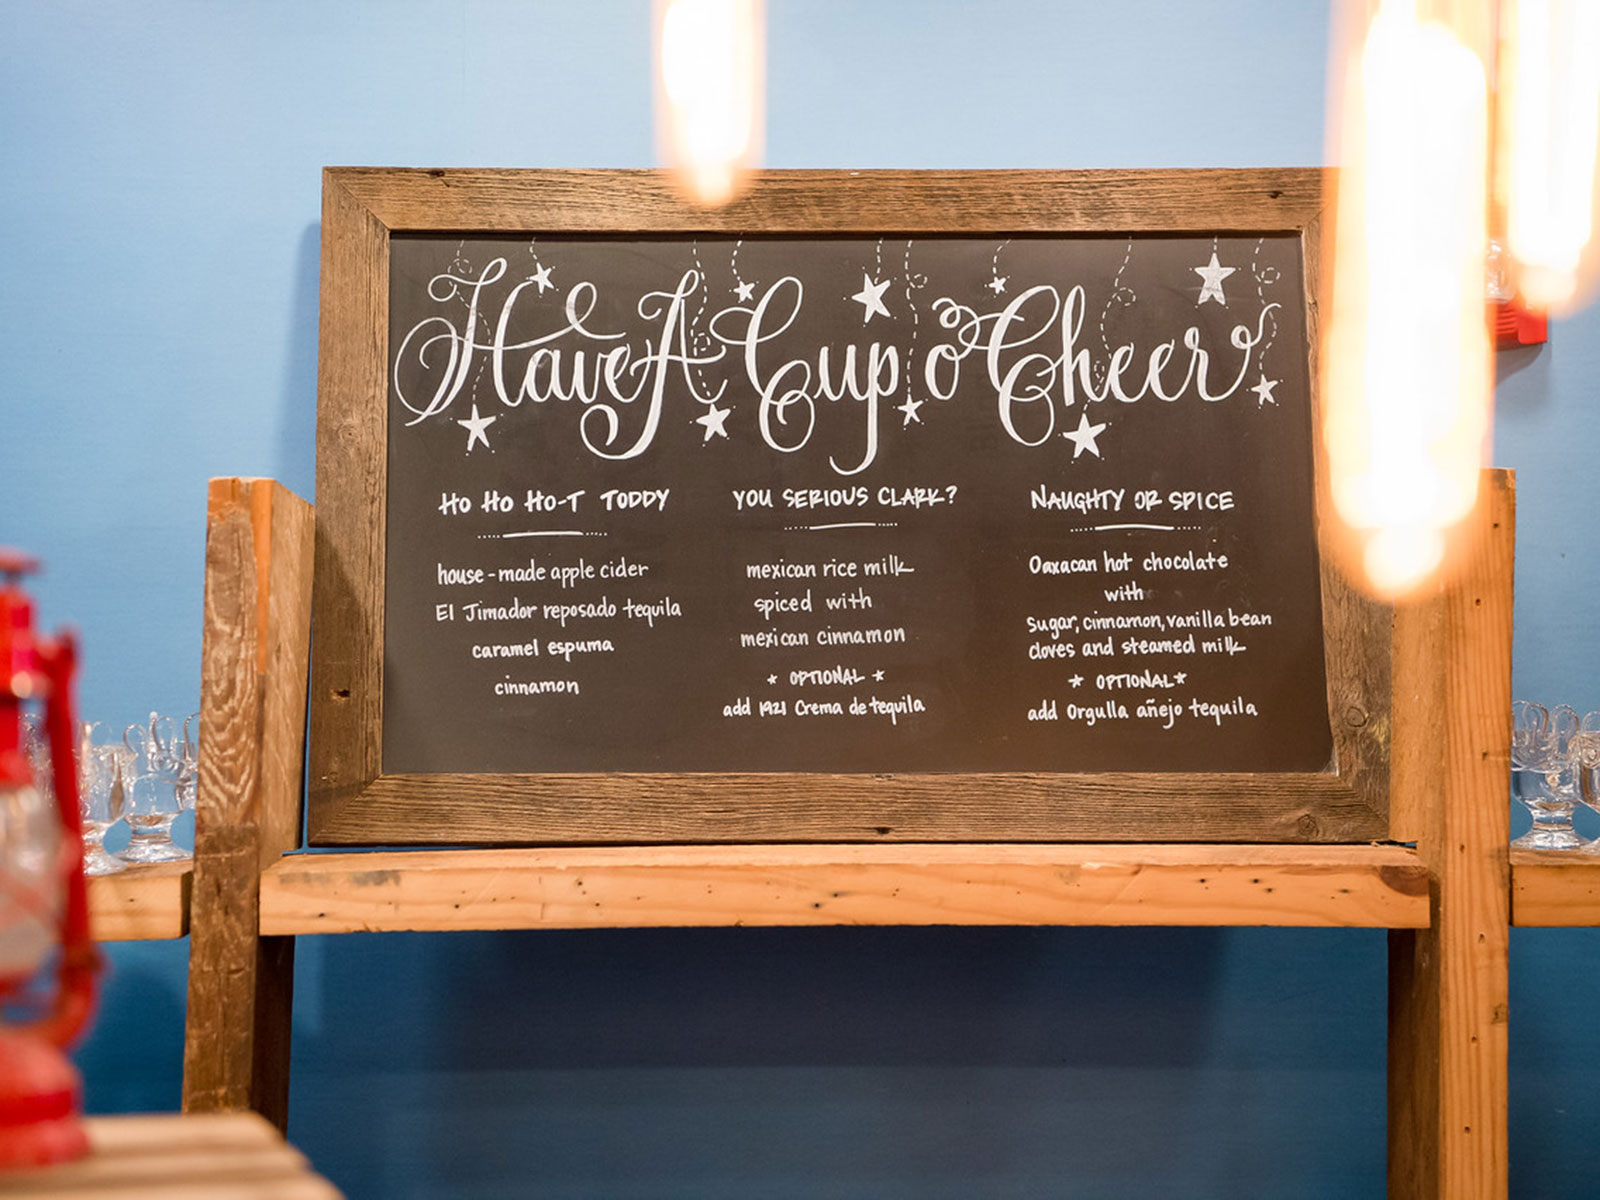 Have A Cup o Cheer
HO HO HO-T TODDY
house-made apple cider
El Jimador reposado tequila
caramel espuma
cinnamon
YOU SERIOUS CLARK?
mexican rice milk
spiced with
mexican cinnamon
★ OPTIONAL ★
add 1921 Crema de tequila
NAUGHTY OR SPICE
Oaxacan hot chocolate
with
Sugar, cinnamon, vanilla bean
cloves and steamed milk
★ OPTIONAL ★
add Orgulla añejo tequila